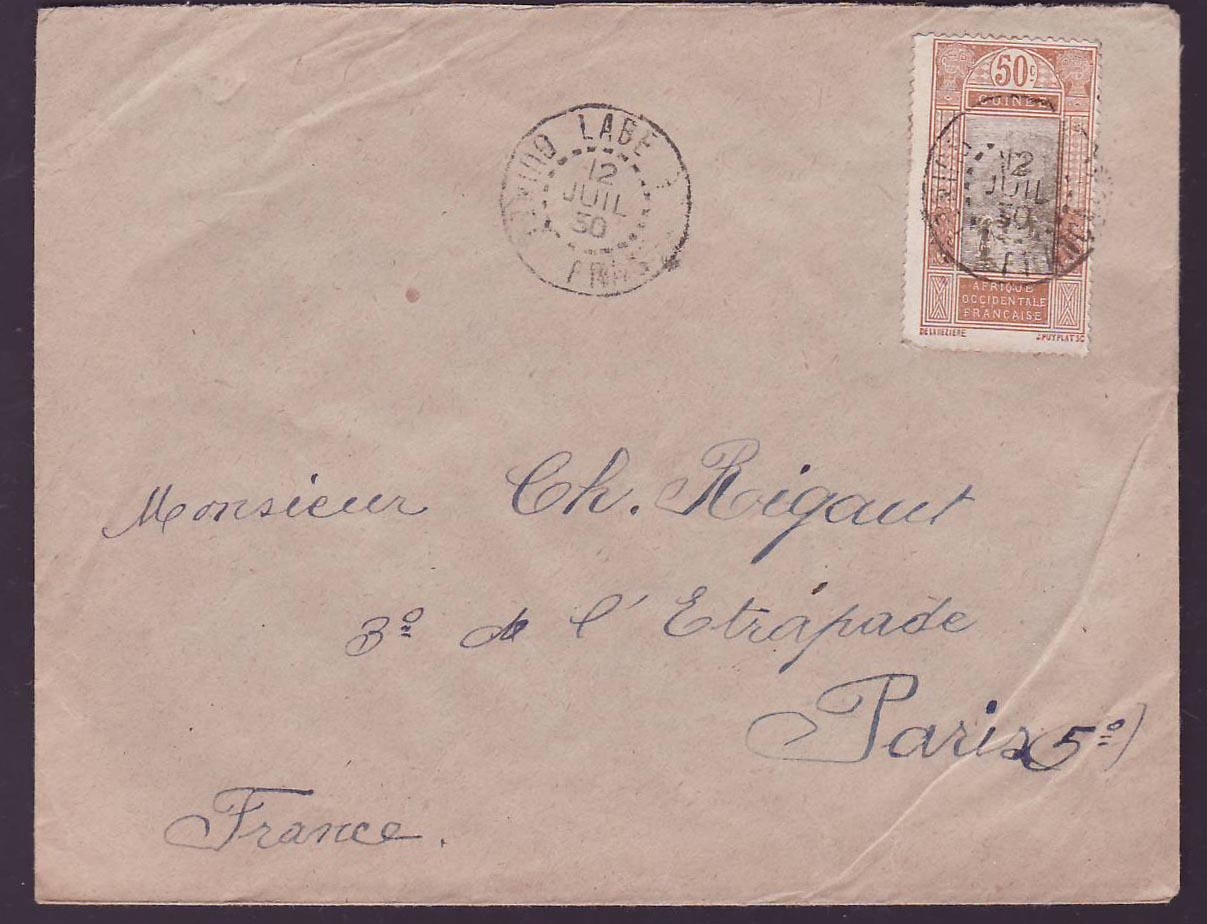 50c
GUINÉE
12
JUIL
30
AFRIQUE
OCCIDENTALE
FRANÇAISE
DE LA NEZIERE J.PUYPLAT SC
LABE
12
JUIL
30
Monsieur Ch. Rigaut
3º de l'Etrapade
Paris 5º)
France.